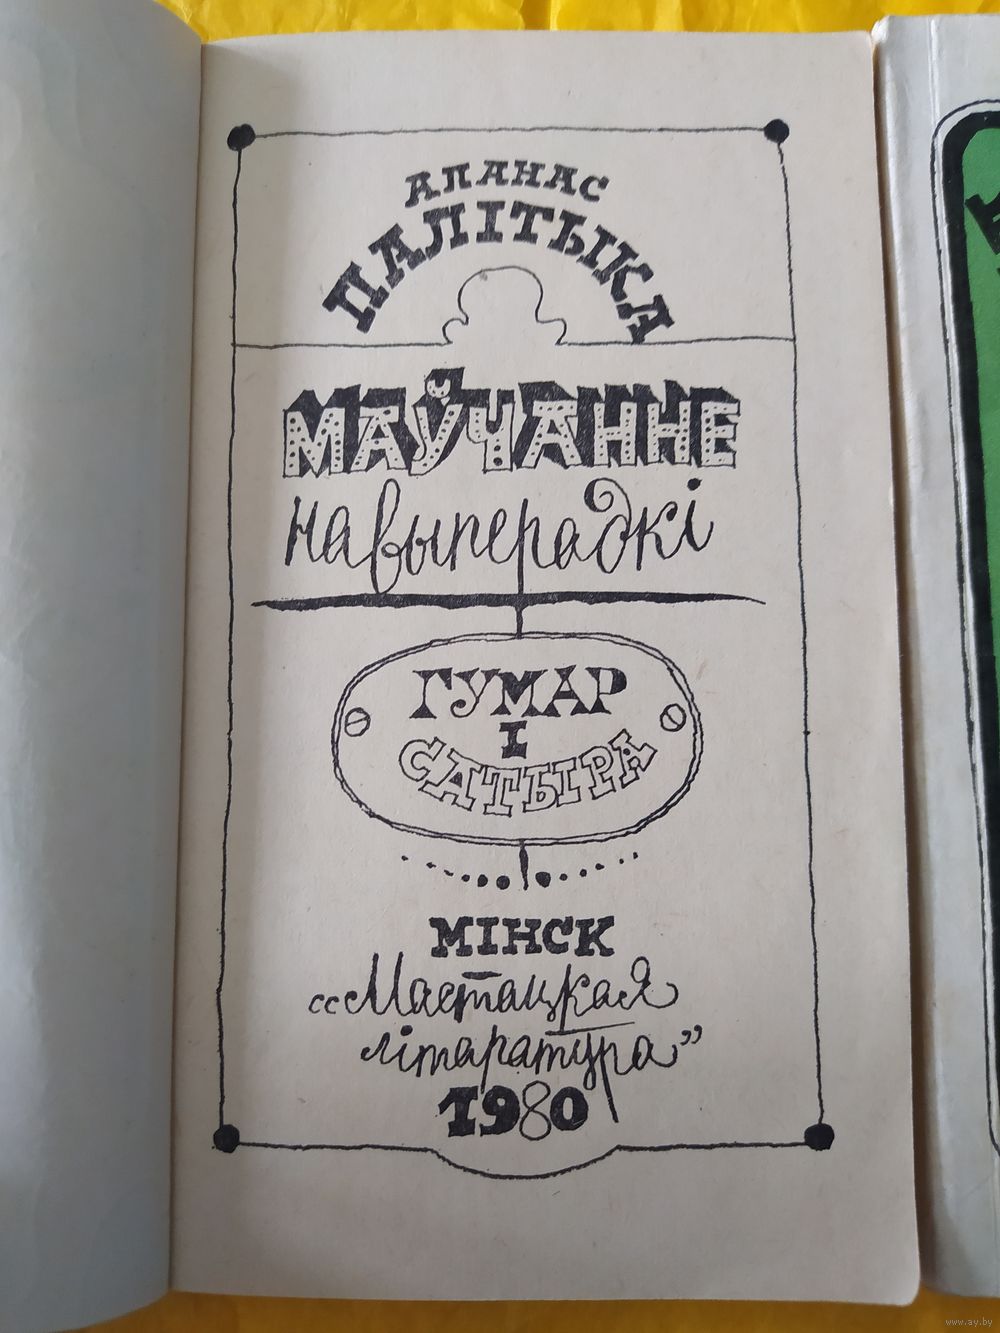 АПАНАС
ПАЛІТЫКА
МАЎЧАННЕ
навыперадкі
ГУМАР
І
САТЫРА
МІНСК
„Мастацкая
літаратура”
1980
www.ay.by